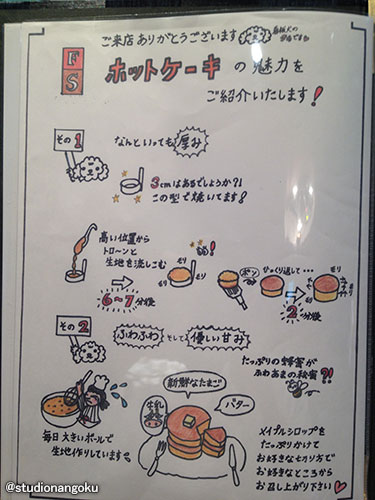 ご来店ありがとうございます
看板犬の
FS
ホットケーキの魅力を
ご紹介いたします!
その1
なんといっても厚み
3cmはあるでしょうか?!
この型で焼いてます!
高い位置から
トローンと
生地を流しこむ
6〜7分後
モリ
モリ
ポン
ひっくり返して…
モリ
モリ
2分後
その2
ふわふわ そして 優しい甘み
たっぷりの蜂蜜が
ふわあまの秘蜜?!
新鮮なたまご
牛乳
バター
毎日大きいボールで
生地作りしています
メイプルシロップを
たっぷりかけて
お好きな切り方で
お好きなところから
お召し上がり下さい
@studionangoku